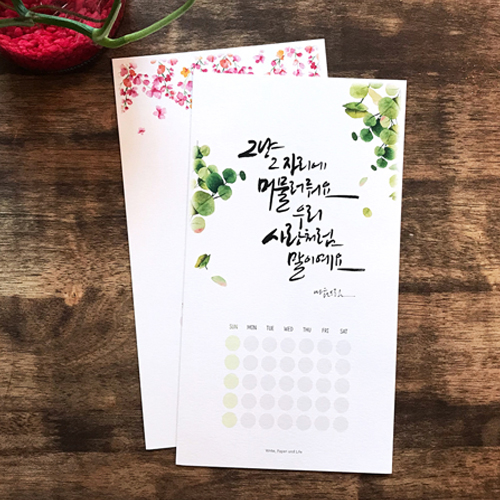 그냥
그 자리에
머물러줘요
우리
사랑처럼
말이예요
SUN MON TUE WED THU FRI SAT